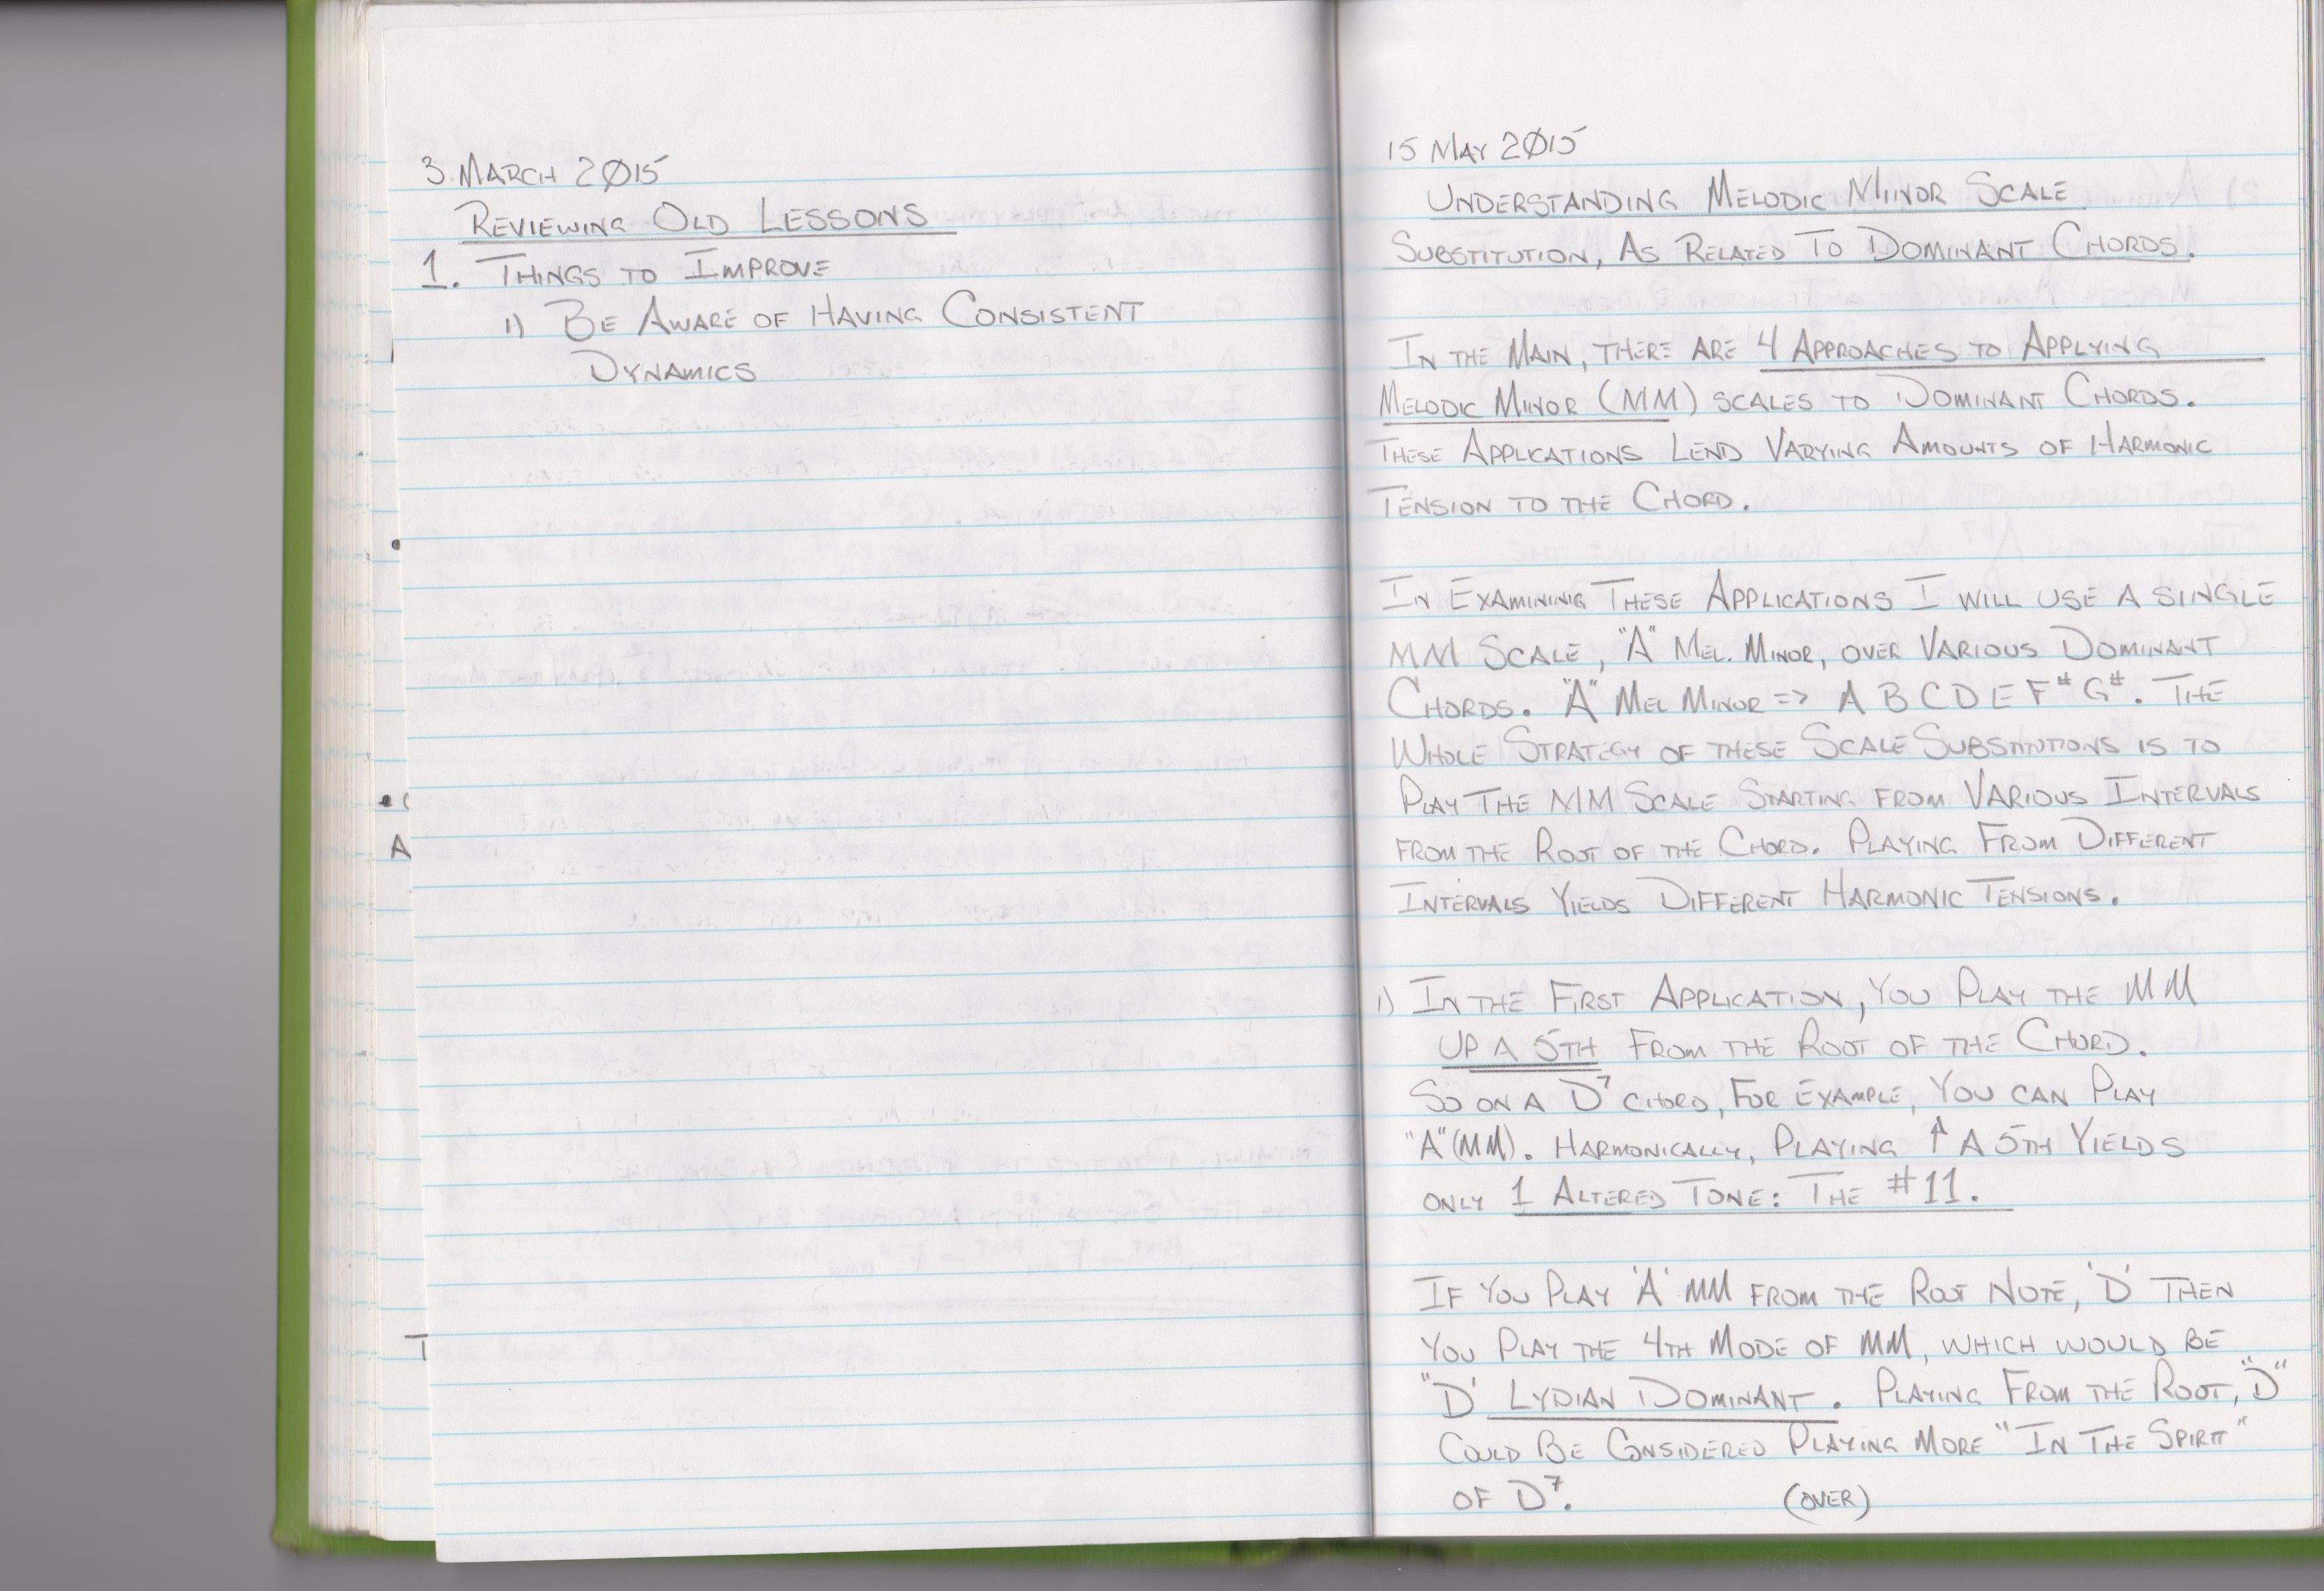 3 MARCH 2Ø15
REVIEWING OLD LESSONS
1. THINGS TO IMPROVE
1) BE AWARE OF HAVING CONSISTENT
DYNAMICS
A
T
15 MAY 2Ø15
UNDERSTANDING MELODIC MINOR SCALE
SUBSTITUTION, AS RELATED TO DOMINANT CHORDS.
IN THE MAIN, THERE ARE 4 APPROACHES TO APPLYING
MELODIC MINOR (MM) SCALES TO DOMINANT CHORDS.
THESE APPLICATIONS LEND VARYING AMOUNTS OF HARMONIC
TENSION TO THE CHORD.
IN EXAMINING THESE APPLICATIONS I WILL USE A SINGLE
MM SCALE, "A" MEL. MINOR, OVER VARIOUS DOMINANT
CHORDS. "A" MEL MINOR => A B C D E F# G#. THE
WHOLE STRATEGY OF THESE SCALE SUBSTITUTIONS IS TO
PLAY THE MM SCALE STARTING FROM VARIOUS INTERVALS
FROM THE ROOT OF THE CHORD. PLAYING FROM DIFFERENT
INTERVALS YIELDS DIFFERENT HARMONIC TENSIONS.
1) IN THE FIRST APPLICATION, YOU PLAY THE MM
UP A 5TH FROM THE ROOT OF THE CHORD.
SO ON A D7 CHORD, FOR EXAMPLE, YOU CAN PLAY
"A" (MM). HARMONICALLY, PLAYING ↑ A 5TH YIELDS
ONLY 1 ALTERED TONE: THE #11.
IF YOU PLAY 'A' MM FROM THE ROOT NOTE, 'D' THEN
YOU PLAY THE 4TH MODE OF MM, WHICH WOULD BE
"D' LYDIAN DOMINANT. PLAYING FROM THE ROOT, "D"
COULD BE CONSIDERED PLAYING MORE "IN THE SPIRIT"
OF D7. (OVER)